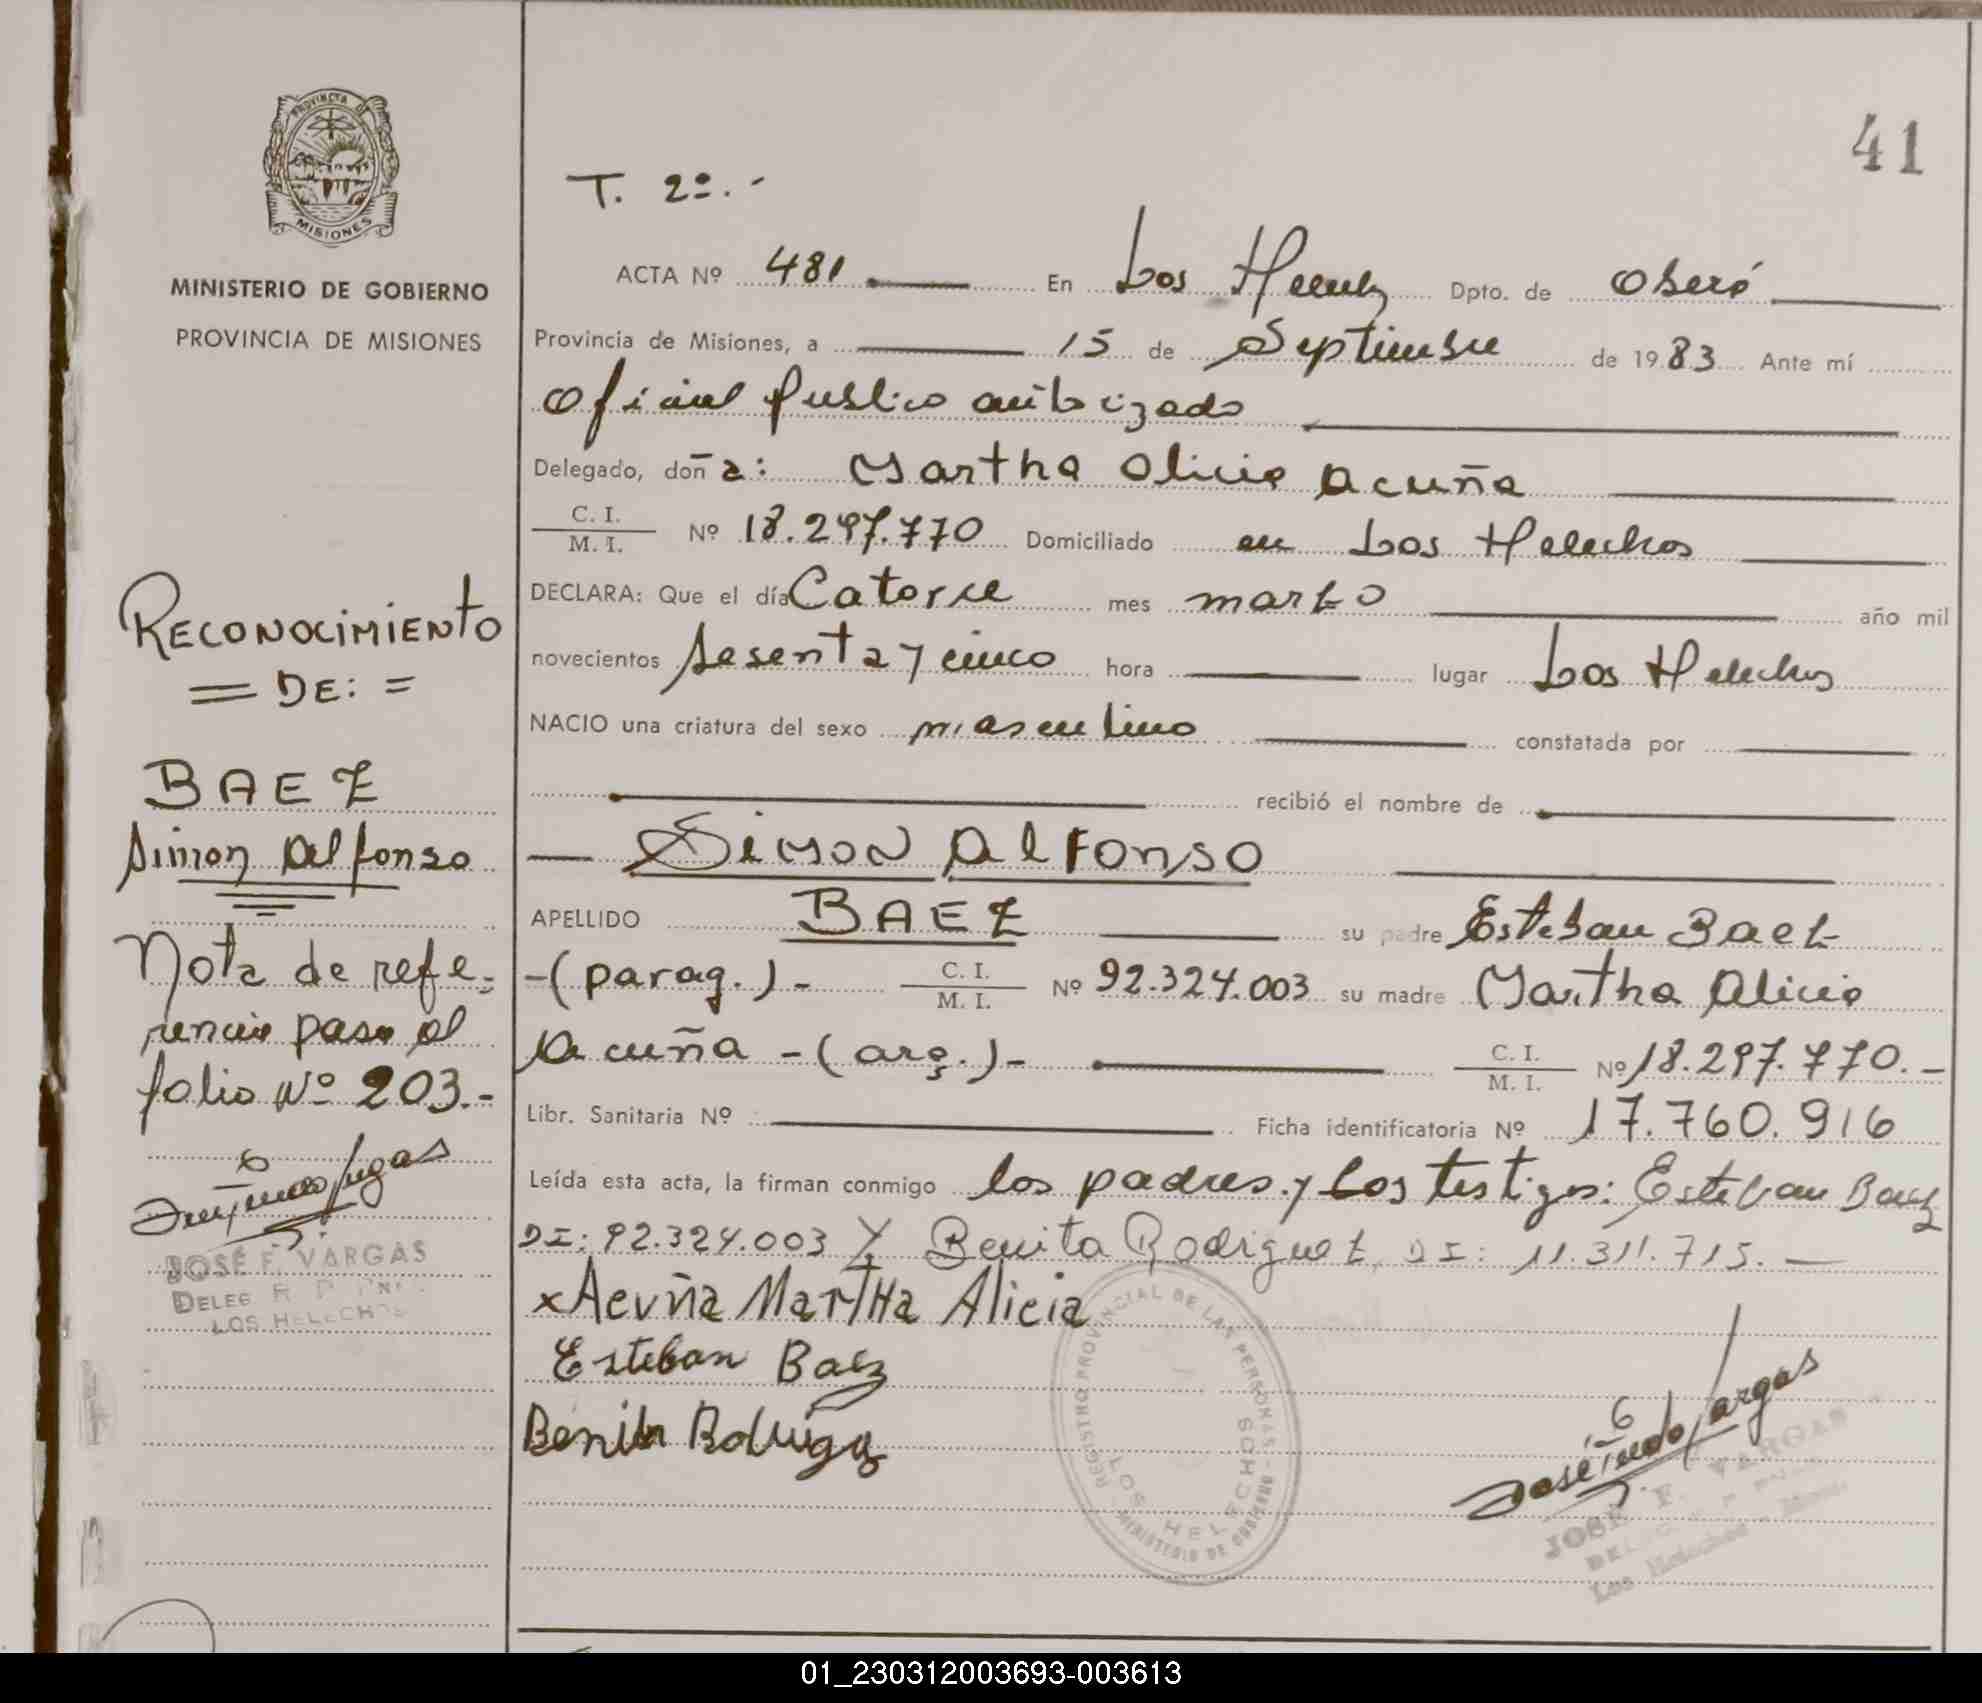 PROVINCIA DE
MISIONES
MINISTERIO DE GOBIERNO
PROVINCIA DE MISIONES
RECONOCIMIENTO
= DE: =
BAEZ
Simon Alfonso
Nota de refe-
rencia pasa al
folio Nº 203.-
JOSÉ F. VARGAS
DELEG R P
LOS HELECHOS
41
T. 2º.-
ACTA Nº 481 En Los Helechos Dpto. de Oberá
Provincia de Misiones, a 15 de Septiembre de 1983 Ante mí
Oficial Publico autorizado
Delegado, doña: Martha Alicia Acuña
C. I. / M. I. Nº 18.297.770 Domiciliado en Los Helechos
DECLARA: Que el día Catorce mes marzo año mil
novecientos sesenta y cinco hora lugar Los Helechos
NACIO una criatura del sexo masculino constatada por
recibió el nombre de
SIMON ALFONSO
APELLIDO BAEZ su padre Esteban Baez
-(parag.)- C. I. / M. I. Nº 92.324.003 su madre Martha Alicia
Acuña -(arg.)- C. I. / M. I. Nº 18.297.770.-
Libr. Sanitaria Nº Ficha identificatoria Nº 17.760.916
Leída esta acta, la firman conmigo los padres y los testigos: Esteban Baez
DI: 92.324.003 Y Benita Rodriguez, DI: 11.311.715.—
x Acuña Martha Alicia
Esteban Baez
Benita Rodriguez
REGISTRO PROVINCIAL DE LAS PERSONAS - MINISTERIO DE GOBIERNO
LOS HELECHOS
JOSE F. VARGAS
Los Helechos
01_230312003693-003613